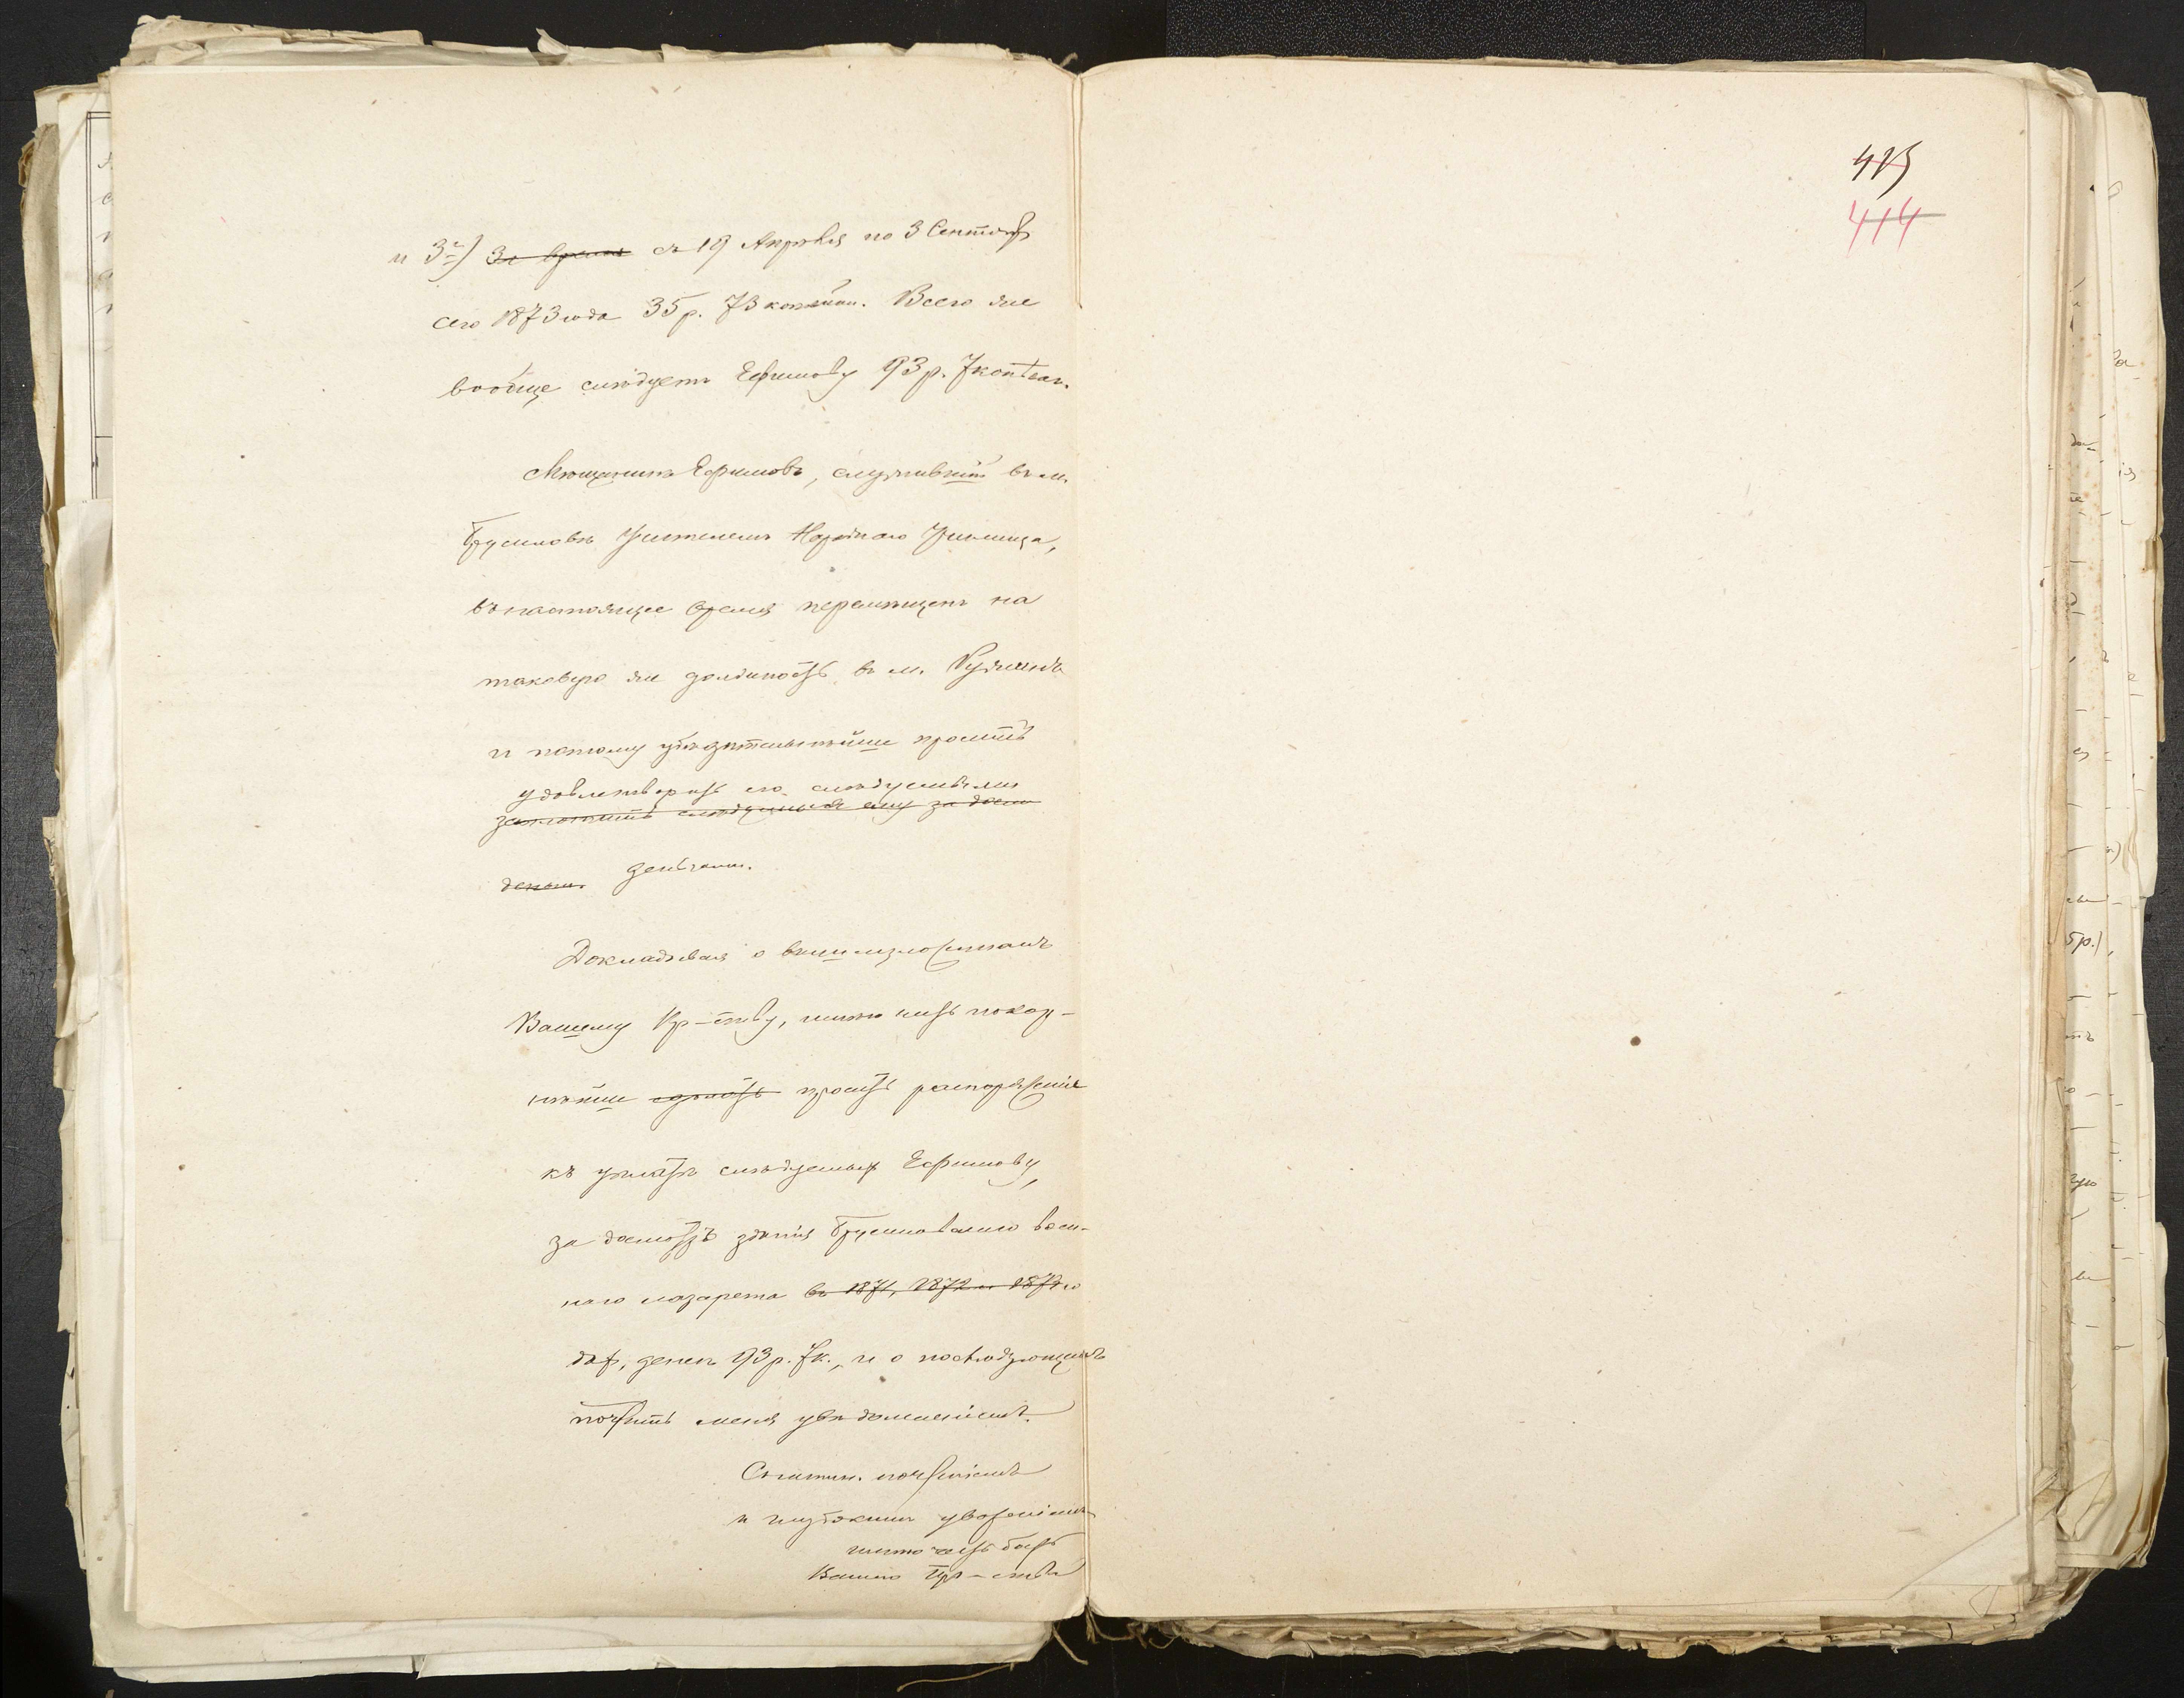 415
414
и 3е) За время съ 19 Апрѣля по 3 Сентября
сего 1873 года 35 р. 73 копѣйки. Всего же
вообще слѣдуетъ Ефимову 93 р. 7 копѣекъ.
Мѣщанинъ Ефимовъ, служившій въ м.
Брусиловѣ Учителемъ Народнаго Училища,
въ настоящее время перемѣщенъ на
таковую же должность въ м.
и потому убѣдительнѣйше проситъ
удовлетворить его слѣдуемыми
слѣдуемыя ему за
деньги. деньгами.
Докладывая о вышеизложенномъ
Вашему Пр-ству, имѣю честь покор-
нѣйше просить распоряженія
къ уплатѣ слѣдуемыхъ Ефимову,
за досмотръ зданія Брусиловскаго воен-
наго лазарета въ 1871, 1872 и 1873 го
дах, денегъ 93 р. 7 к., и о послѣдующемъ
почтить меня увѣдомленіемъ.
Съ истин. почтеніемъ
и глубокимъ уваженіемъ
имѣю честь быть
Вашего Пр-ства